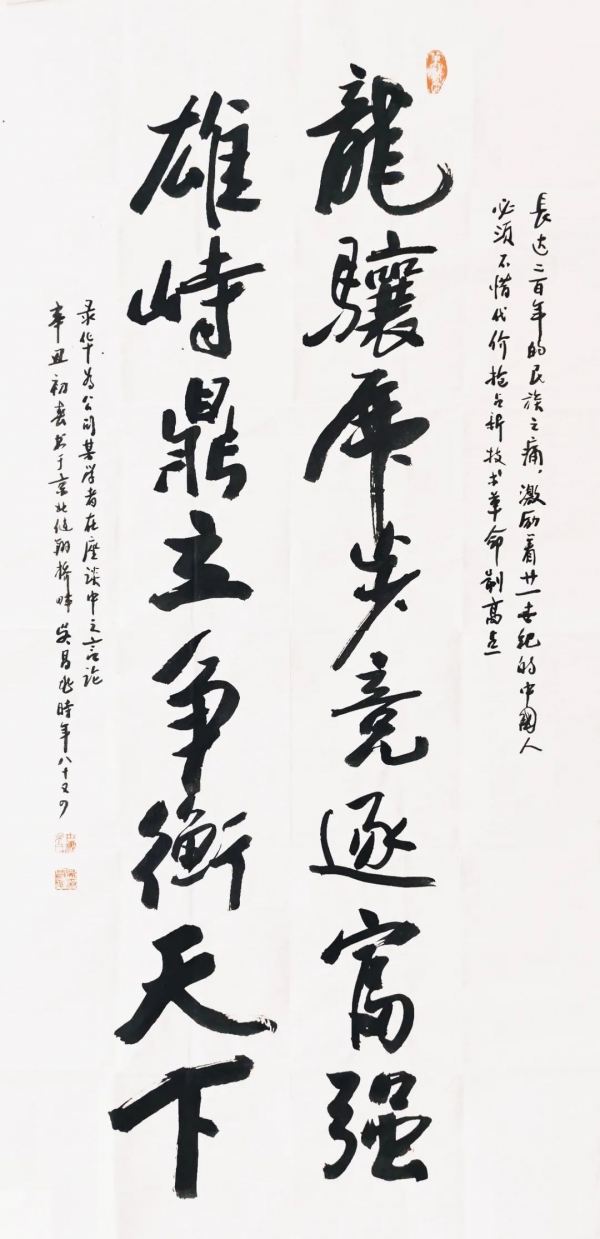 長达二百年的民族之痛，激励着廿一世纪的中國人
必須不惜代价抢占新技术革命制高点
龍驤虎步竞逐富强
雄峙鼎立争衡天下
录华为公司某学者在座谈中之言论
辛丑初春书于京北健翔桥畔 吴昌 時年八十又